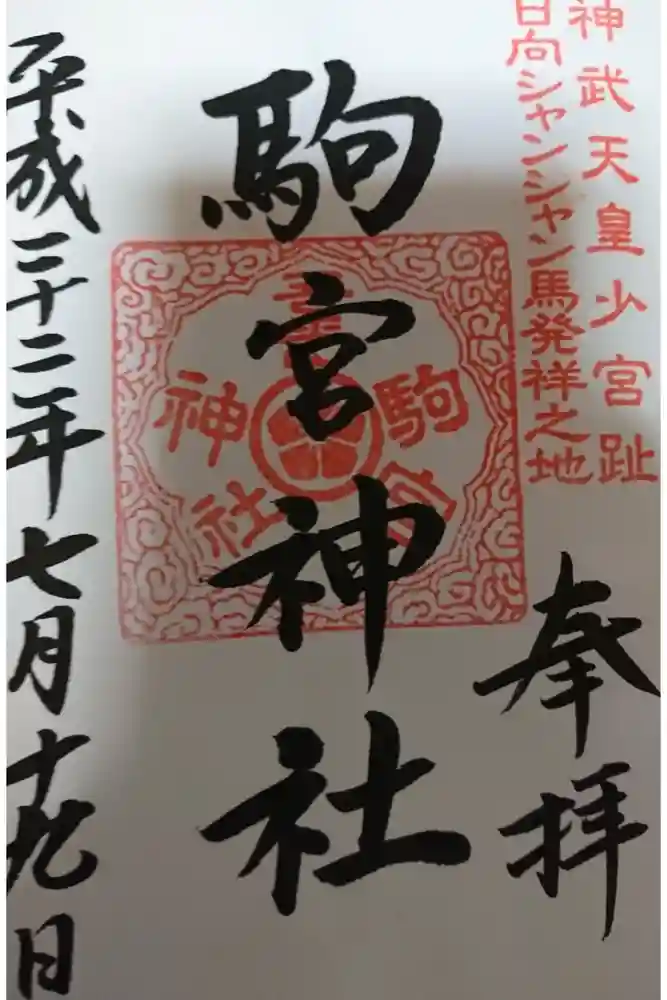 神武天皇少宮趾
日向シャンシャン馬発祥之地
奉拝
駒宮神社
駒宮
神社
平成二十二年七月十九日